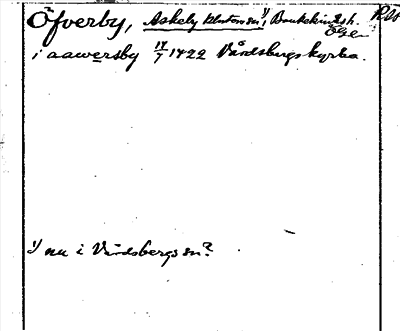 Öfverby, Askeby klosters sn 1), Bankekinds h. RAp
Ög.
i aawersby 17/7 1422 Vårdsbergs kyrka.
1) nu i Vårdsbergs sn?